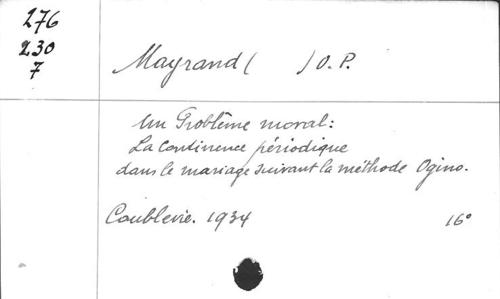 276
230
7
Mayrand (      ) O. P.
Un Problême moral:
La Continence périodique
dans le mariage suivant la méthode Ogino.
Coublevie. 1934 16°